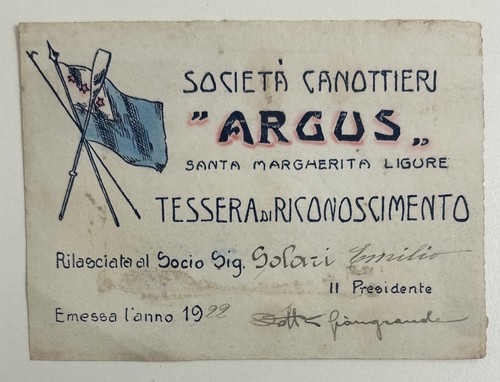 SOCIETÀ CANOTTIERI
"ARGUS„
SANTA MARGHERITA LIGURE
TESSERA DI RICONOSCIMENTO
Rilasciata al Socio Sig. Solari Emilio
Il Presidente
Emessa l'anno 1922 Dott Giangrande